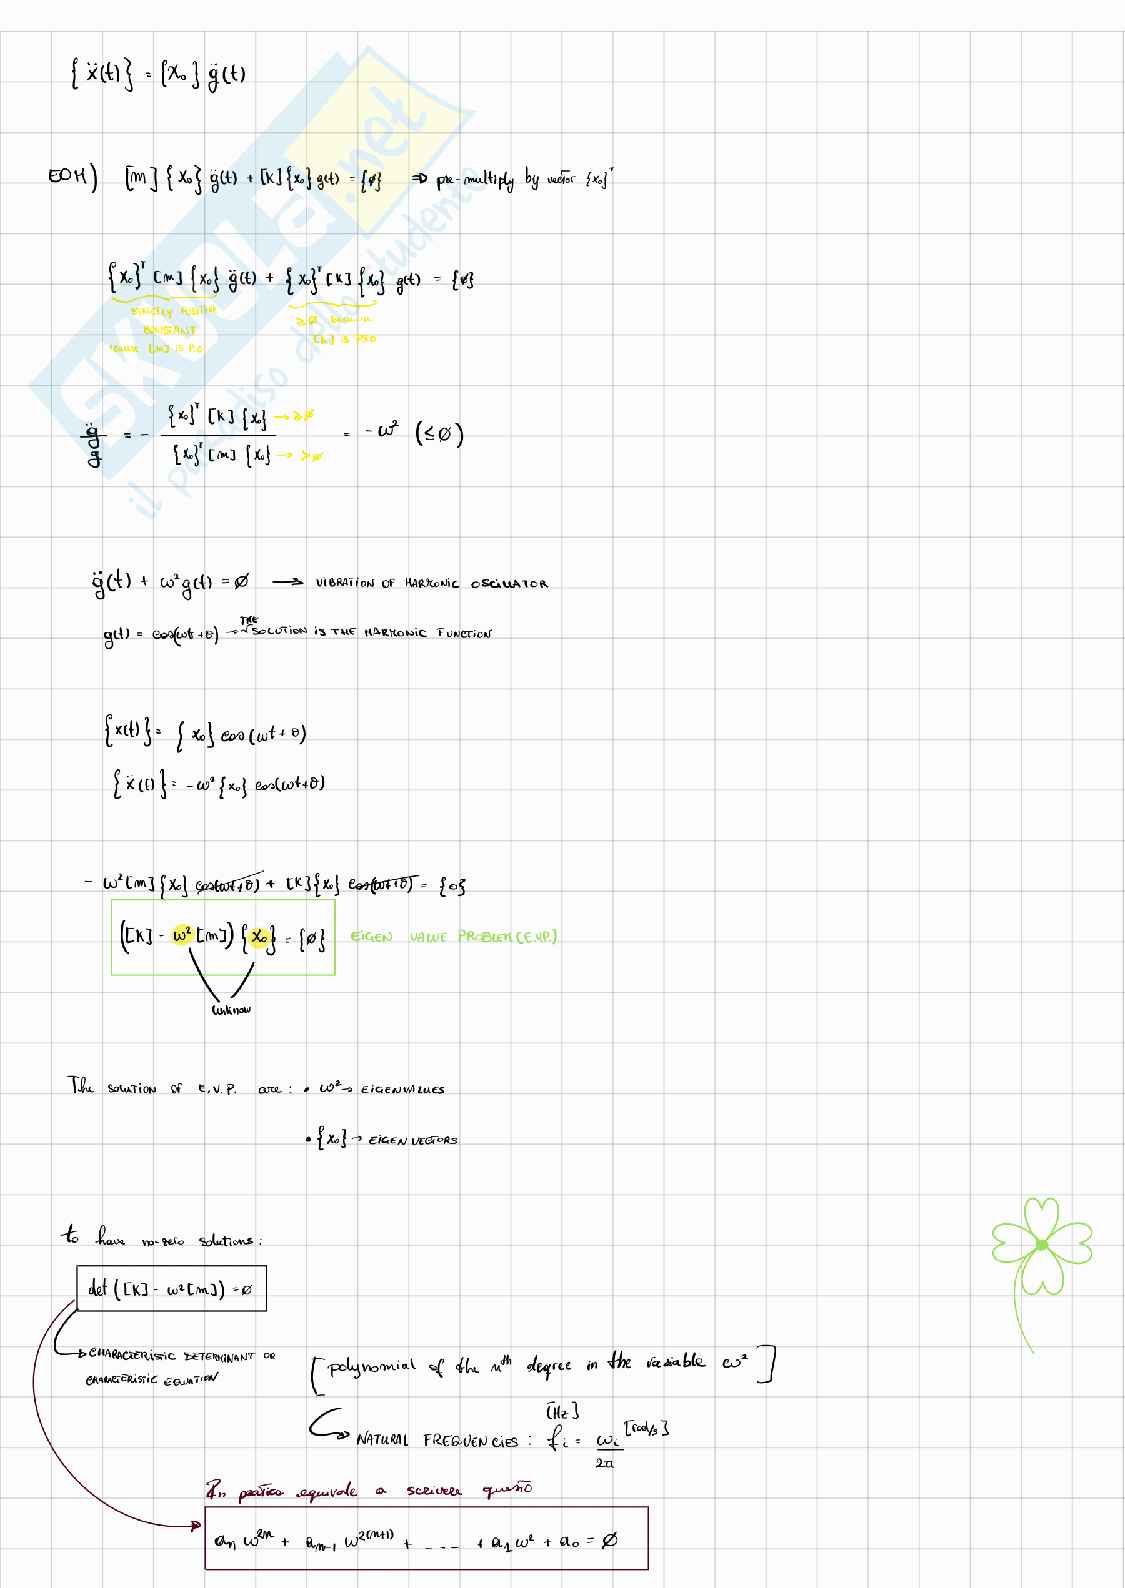 {ẍ(t)} = {x₀} g̈(t)
EOM) [m] {x₀} g̈(t) + [k]{x₀} g(t) = {ø} ⇒ pre-multiply by vector {x₀}ᵀ
{x₀}ᵀ [m] {x₀} g̈(t) + {x₀}ᵀ [k] {x₀} g(t) = {ø}
STRICTLY POSITIVE ≥ø because
CONSTANT [k] IS PSD
'cause [m] IS P.D
{x₀}ᵀ [k] {x₀} → ≥ø
g̈/g = - = -ω² (≤ø)
{x₀}ᵀ [m] {x₀} → >ø
g̈(t) + ω²g(t) = ø → VIBRATION OF HARMONIC OSCILLATOR
g(t) = cos(ωt+θ) → THE SOLUTION IS THE HARMONIC FUNCTION
{x(t)} = {x₀} cos(ωt+θ)
{ẍ(t)} = -ω²{x₀} cos(ωt+θ)
- ω²[m]{x₀} cos(ωt+θ) + [k]{x₀} cos(ωt+θ) = {0}
([k] - ω²[m]) {x₀} = {ø} EIGEN VALUE PROBLEM (E.V.P.)
unknow
The SOLUTION OF E.V.P. are: • ω² → EIGENVALUES
• {x₀} → EIGENVECTORS
to have no-zero solutions:
det ([k] - ω²[m]) = ø
CHARACTERISTIC DETERMINANT OR
CHARACTERISTIC EQUATION
[polynomial of the nᵗʰ degree in the variable ω²]
NATURAL FREQUENCIES: fᵢ [Hz] = ωᵢ [rad/s] / 2π
In pratica equivale a scrivere questo
aₙ ω²ⁿ + aₙ₋₁ ω²⁽ⁿ⁺¹⁾ + - - - + a₁ω² + a₀ = ø
SKUOLA.net
il paradiso dello studente